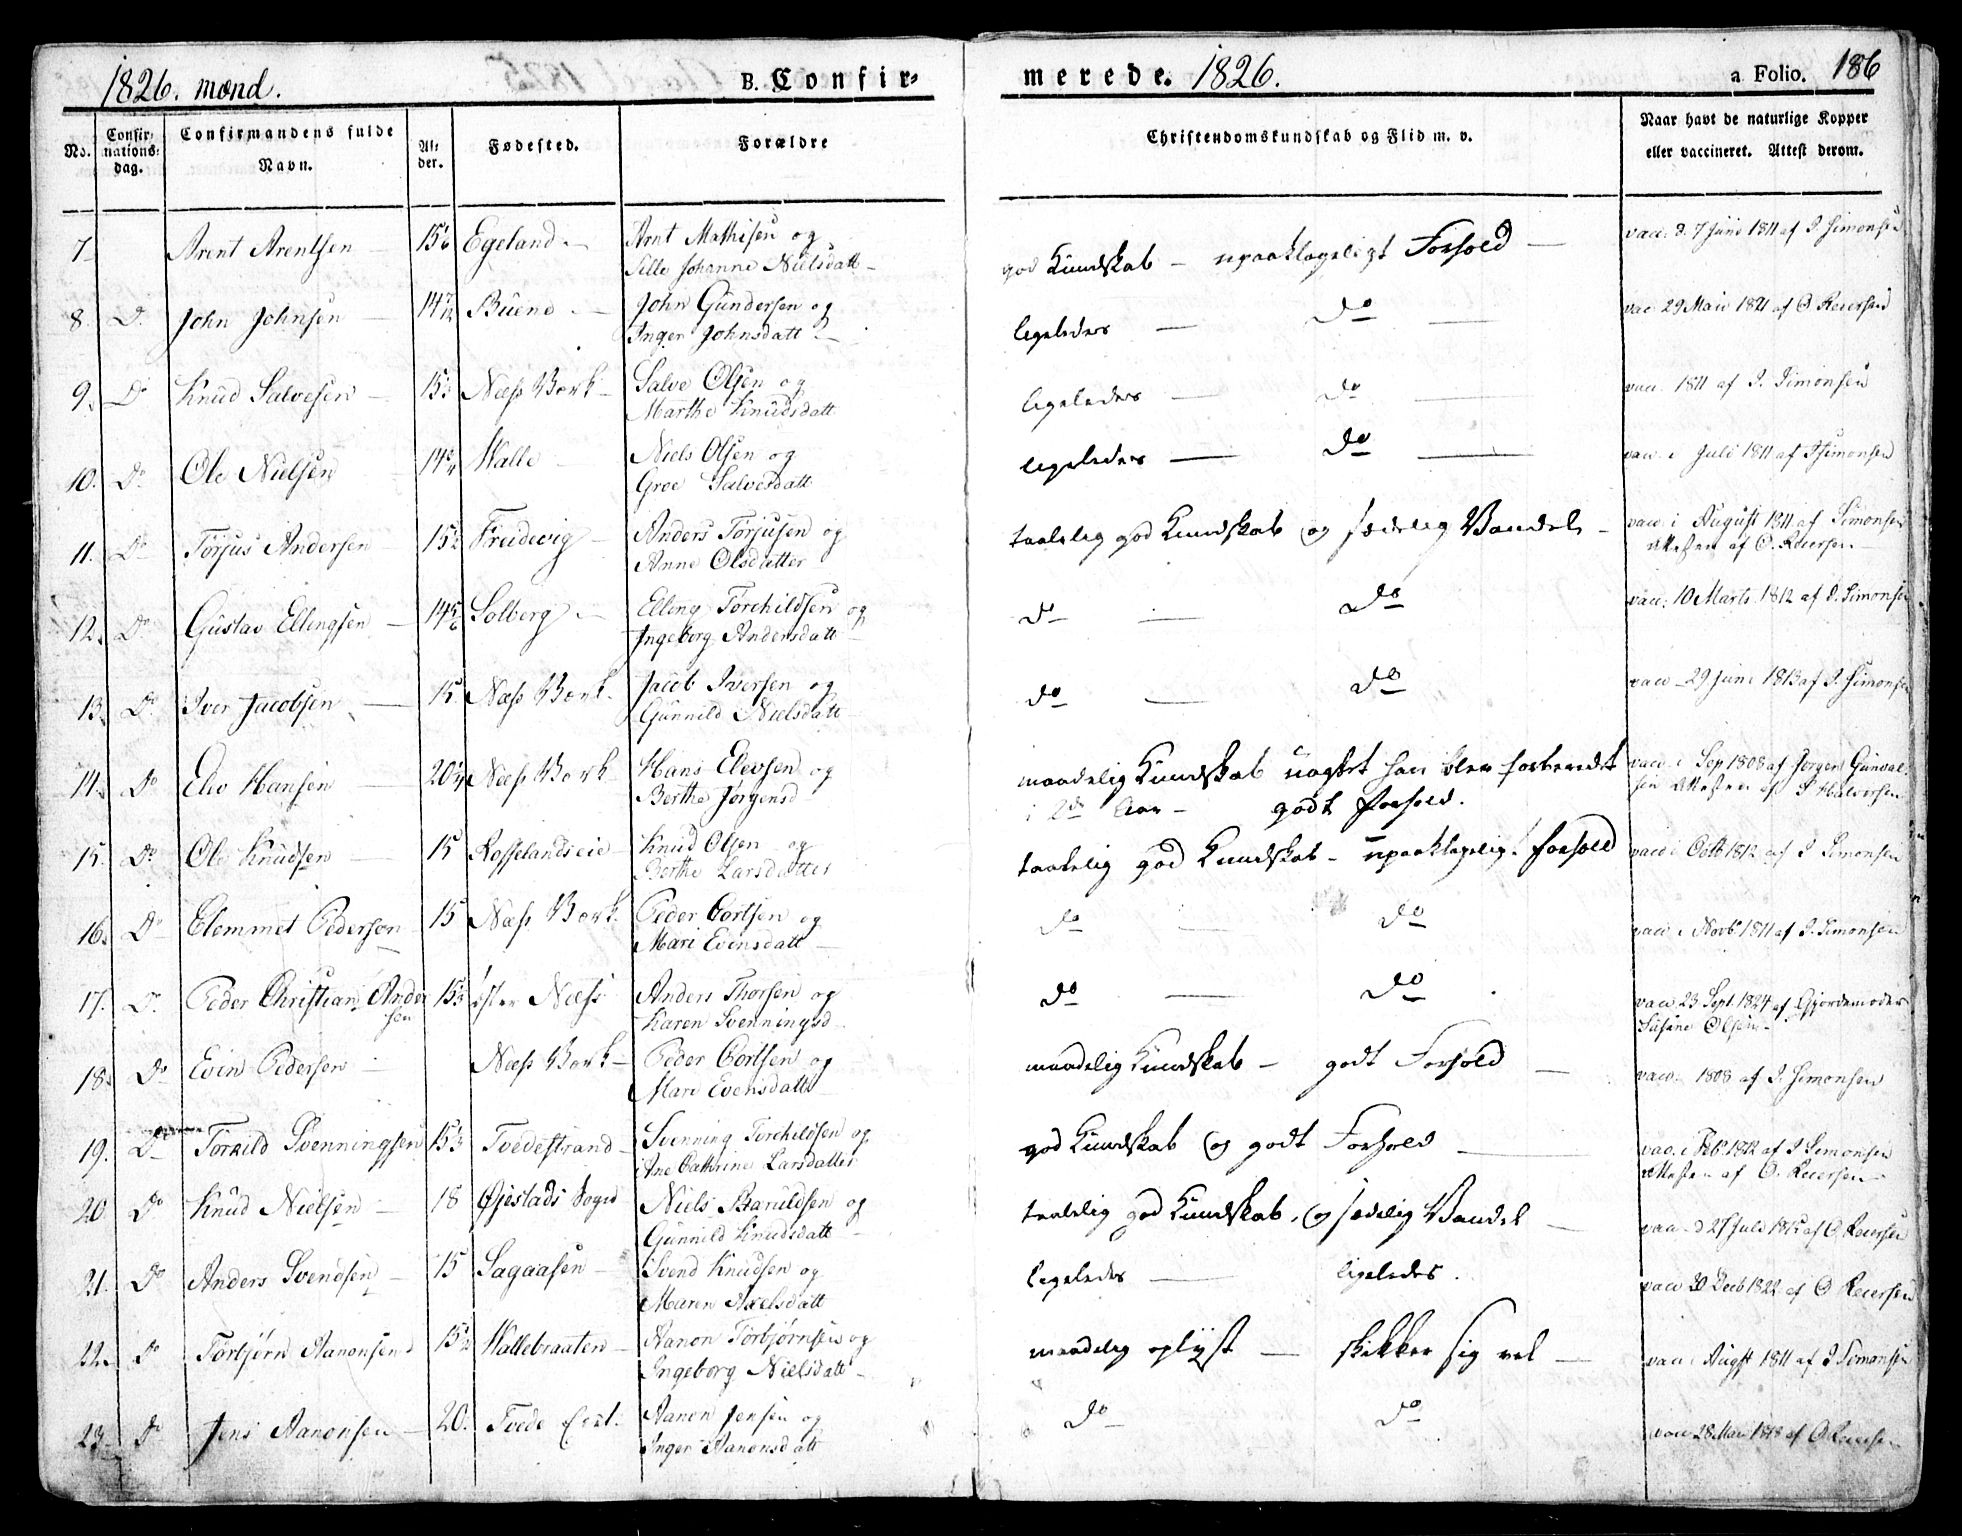 1826. mænd. B. Confir-
merede. 1826. a Folio. 186
No. Confir-nations-dag. Confirmandens fulde Navn. Al-der. Fødested. Forældre
Christendomskundskab og Flid m. v. Naar havt de naturlige Kopper eller vaccineret. Attest derom.
7 Arent Arentsen 15 Egeland Arnt Mathisen og
Sille Johanne Nielsdatt
god Kundskab – upaaklageligt Forhold vacc. d. 7 Juni 1811 af J. Simonsen
8. Do John Johnsen 14 Buene John Gundersen og
Inger Johnsdatt
ligeledes Do vac 29 Mai 1821 af O Reiersen
9. Do Knud Salvesen 15 Næss Værk Salve Olsen og
Marthe Knudsdatt
ligeledes Do vacc. 1811 af J. Simonsen
10. Do Ole Nielsen 14 Walle Niels Olsen og
Groe Salvesdatt
ligeledes Do vacc. i Juli 1811 af J Simonsen
11. Do Torjus Andersen 15 Anders Torjusen og
Anne Olsdatter
taalelig god Kundskab og sædelig Vandel vacc. i August 1811 af Simonsen
Attesten af O. Reiersen
12. Do Gustav Ellingsen 14 Solberg Elling Torchildsen og
Ingeborg Andersdatt
Do Do vacc: 10 Marts 1812 af J. Simonsen
13. Do Iver Jacobsen 15 Næss Værk Jacob Iversen og
Gunnild Nielsdatt
Do Do vacc 29 June 1813 af J. Simonsen
14. Do Elev Hansen 20 Næss Værk Hans Elevsen og
Berthe Jørgensd
maadelig Kundskab uagtet han blev forberedt vacc. i Sep 1808 af Jørgen Gunval-
i 2de Aar – godt Forhold. sen Attesten af Halvorsen
15. Do Ole Knudsen 15 Rosselandseie Knud Olsen og
Berthe Larsdatter
taalelig god Kundskab – upaaklagelig Forhold vacc i Octb 1812 af J Simonsen
16. Do Clemmet Pedersen 15 Næss Værk Peder Cortsen og
Mari Evensdatt
Do Do vacc i Novbr 1811 af J. Simonsen
17. Do Peder Christian Ander
sen 15 Øster Næss Anders Thorsen og
Karen Svenningsd
Do Do vacc 23 Sept. 1824 af Gjordemoder
Susane Olsen
18. Do Evin Pedersen Næss Værk Peder Cortsen og
Mari Evensdatt
maadelig Kundskab – godt Forhold vacc. 1808 af J. Simonsen
19. Do Torkild Svenningsen 15 Tvedestrand Svenning Torchildsen og
Ane Cathrine Larsdatter
god Kundskab og godt Forhold vac. i Feb. 1812 af J Simonsen
Attesten af O. Reiersen
20 Do Knud Nielsen 18 Øjestads Sogn Niels Baruldsen og
Gunnild Knudsdatt
taalelig god Kundskab, og sædelig Vandel vacc d 27 Juli af O Reiersen
21. Do Anders Svendsen 15 Sagaasen Svend Knudsen og
Maren Axelsdatt
ligeledes ligeledes. vacc 30 Decb 1822 af O Reiersen
22. Do Torbjørn Aanonsen 15 Wallebraaten Aanon Torbjørnsen og
Ingeborg Nielsdatt
maadelig oplyst – skikker sig vel vacc i Augst 1811 af J Simonsen
23 Do Jens Aanonsen 20. Tvede Aanon Jensen og
Inger Aanonsdatt
Do Do vacc 28 Mai 1818 af O Reiersen